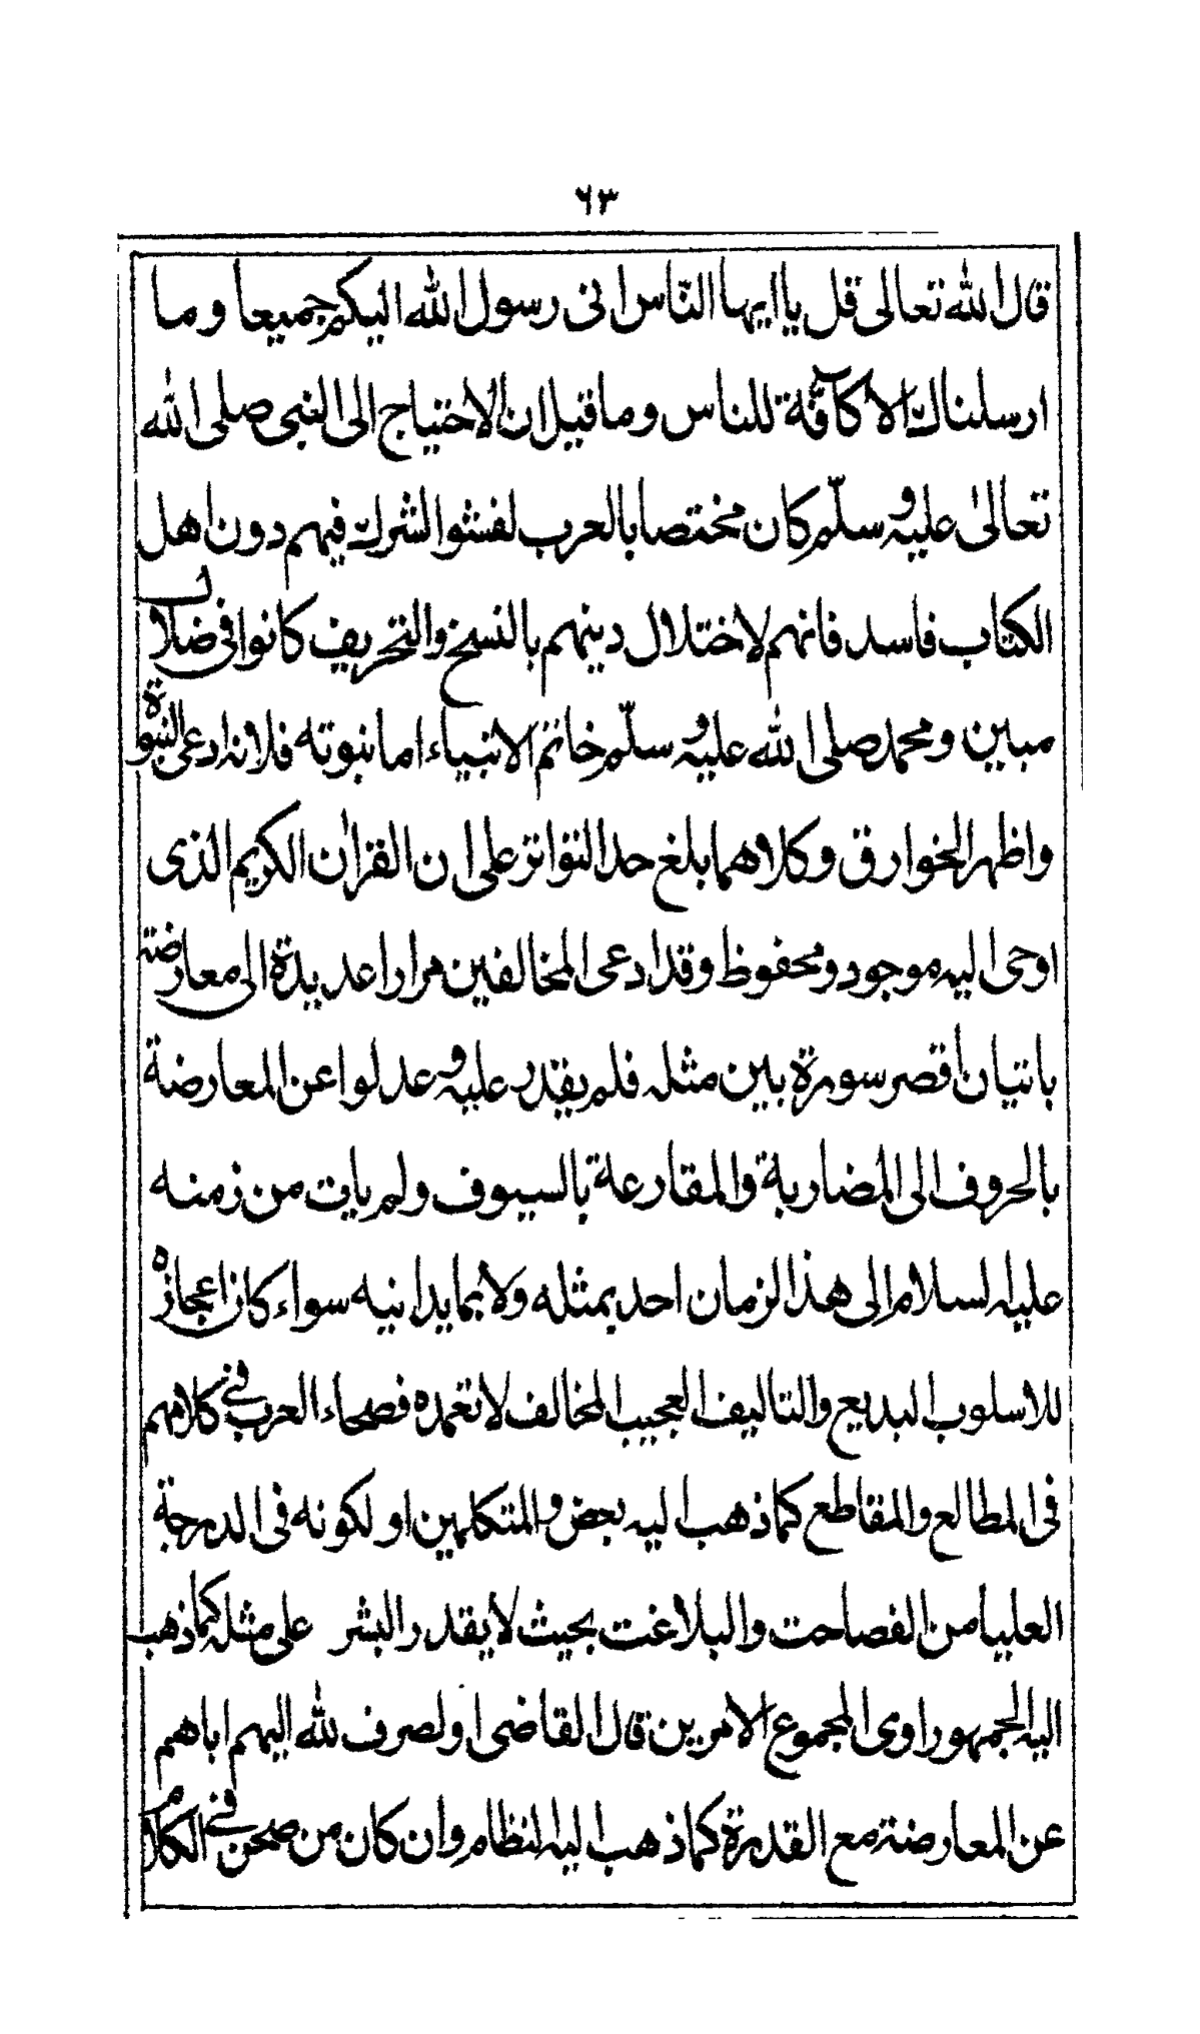 ٦٣
قال الله تعالى قل يا ايها الناس انى رسول الله اليكم جميعا وما
ارسلناك الا كآفّة للناس وما قيل ان الاحتياج الى النبى صلى الله
تعالىٰ عليه و سلّم كان مختصا بالعرب لفشوا الشرك فيهم دون اهل
الكتاب فاسد فانهم لاختلال دينهم بالنسخ والتحريف كانوا فى ضلال
مبين ومحمد صلى الله عليه و سلّم خاتم الانبياء اما نبوته فلانه ادعى النبوة
واظهر الخوارق وكلاهما بلغ حد التواتر على ان القراٰن الكريم الذى
اوحى اليه موجود ومحفوظ وقد ادعى المخالفين مرارا عديدة الى معارضته
باتيان اقصر سورة بين مثله فلم يقدر عليه و عدلوا عن المعارضة
بالحروف الى المضاربة والمقارعة بالسيوف ولم يات من زمنه
عليه السلام الى هذا الزمان احد بمثله ولا بما يدانيه سواء كان اعجازه
للاسلوب البديع والتاليف العجيب المخالف لا تعمده فصحاء العرب فى كلامهم
فى المطالع والمقاطع كما ذهب اليه بعض و المتكلمين او لكونه فى الدرجة
العليا من الفصاحت والبلاغت بحيث لا يقدر البشر على مثله كما ذهب
اليه الجمهور اوى المجموع الامرين قال القاضى او لصرف لله اليهم اباهم
عن المعارضة مع القدرة كما ذهب اليه النظام وان كان من صحن فى الكلام